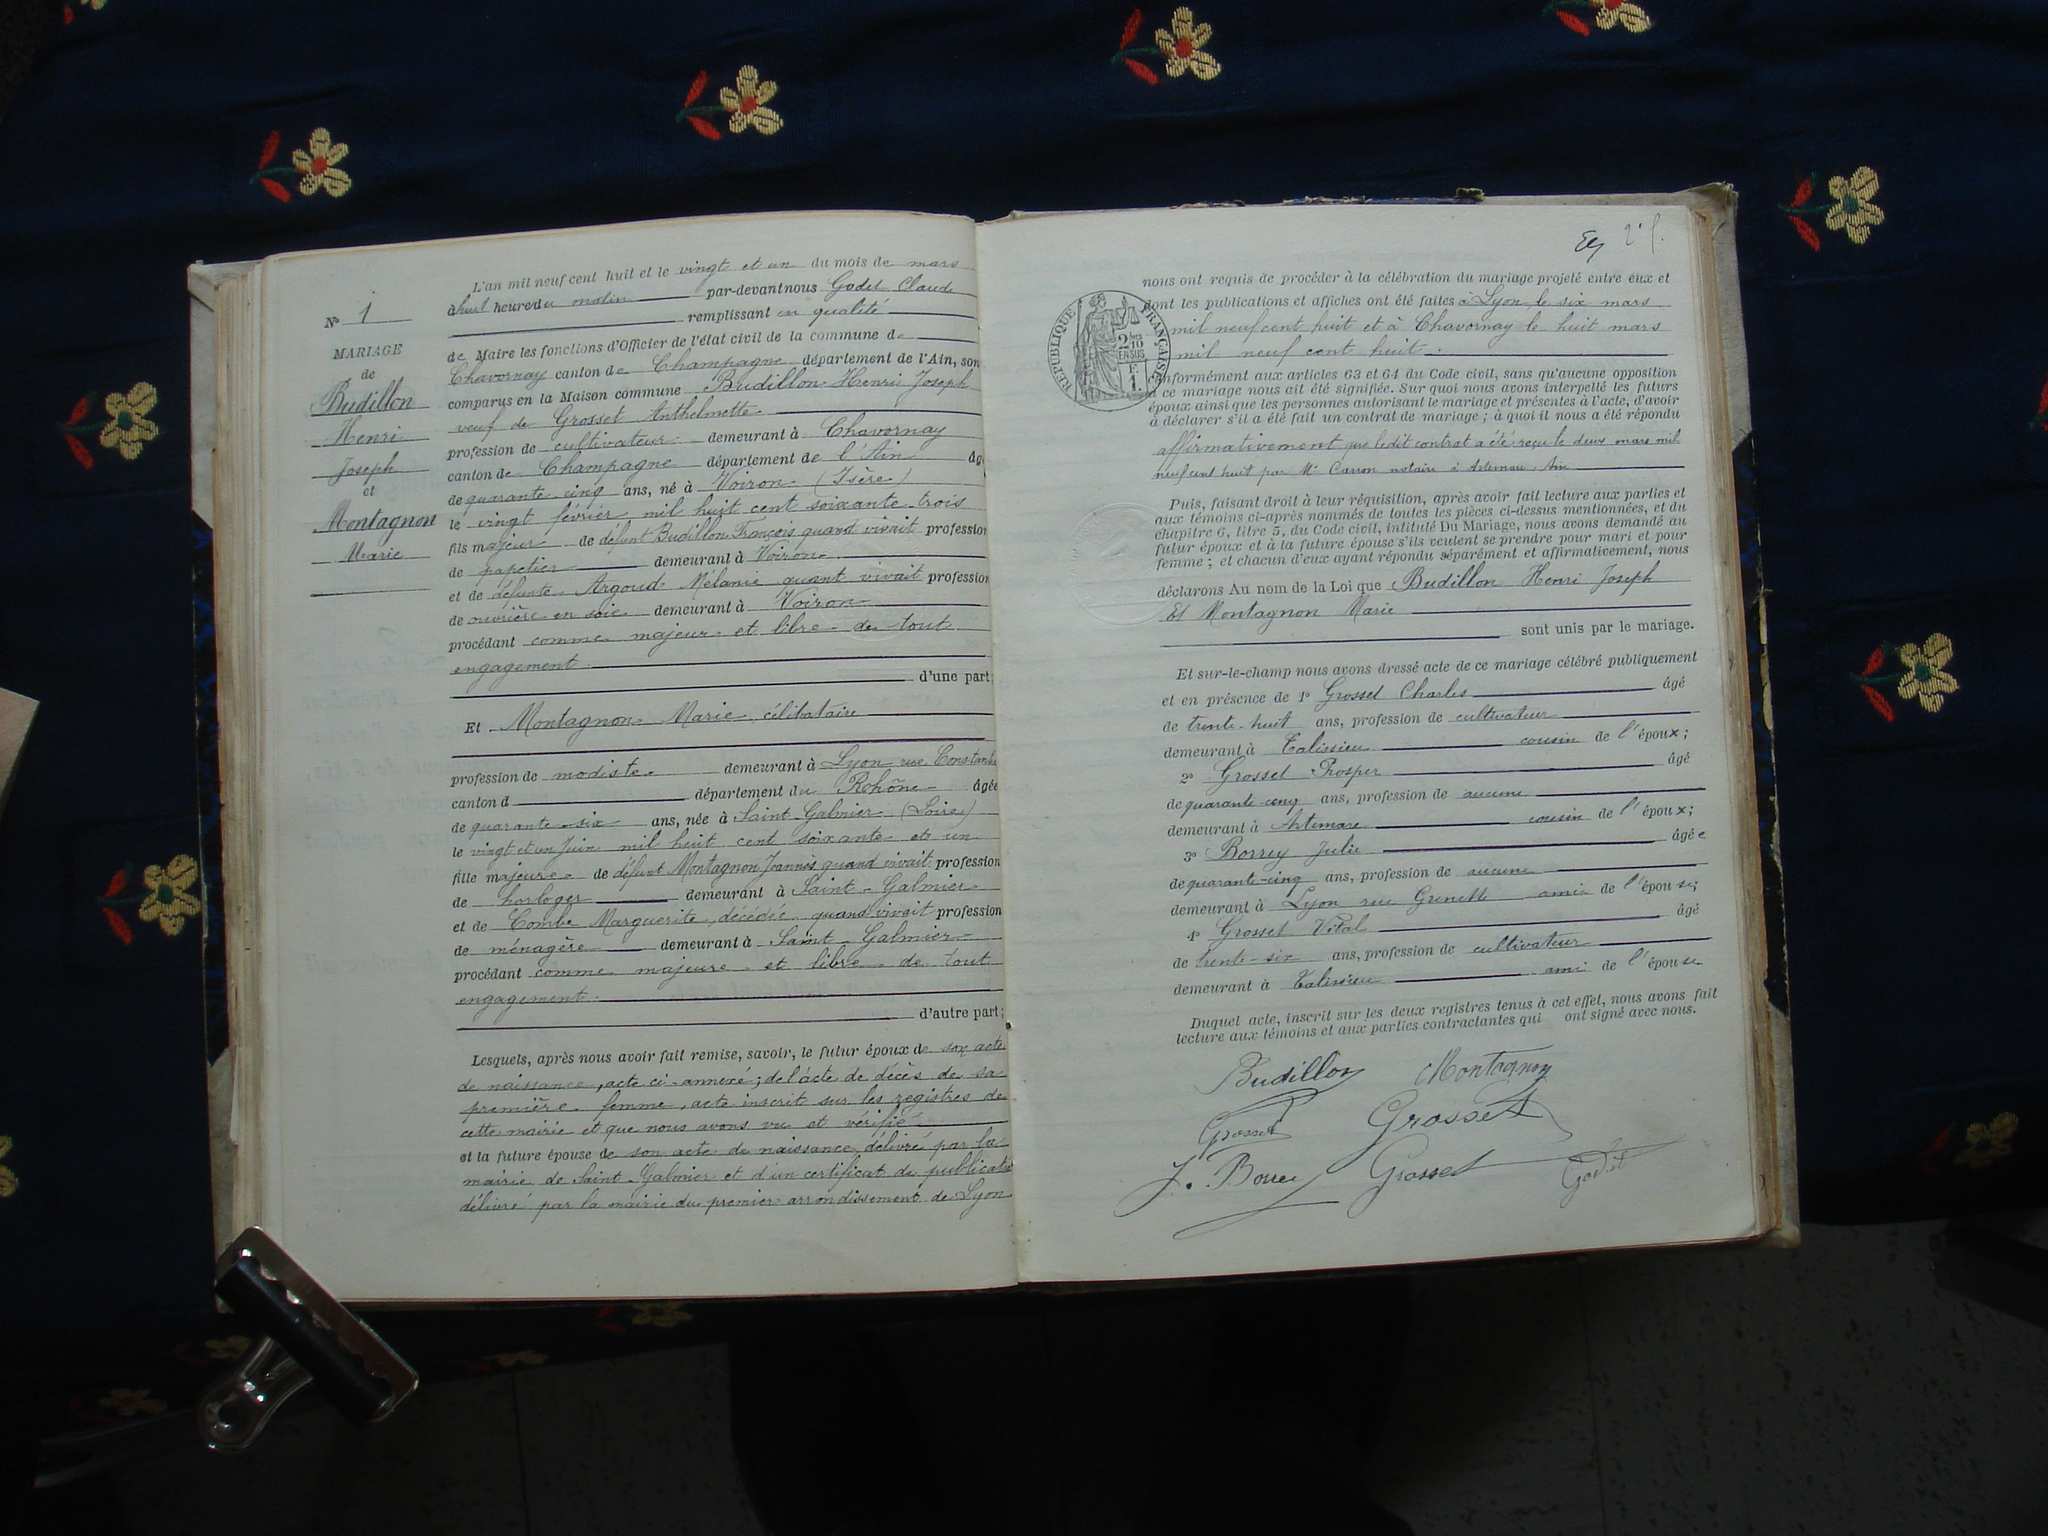 L'an mil neuf cent huit et le vingt et un du mois de mars
à huit heure du matin par-devant nous Godet Claude
remplissant en qualité
de Maire les fonctions d'Officier de l'état civil de la commune de
Chavornay canton de Champagne département de l'Ain, son
comparus en la Maison commune Budillon Henri Joseph
veuf de Grosset Anthelmette
profession de cultivateur demeurant à Chavornay
canton de Champagne département de l'Ain âg
de quarante-cinq ans, né à Voiron (Isère)
le vingt février mil huit cent soixante-trois
fils majeur de défunt Budillon François quand vivait profession
de papetier demeurant à Voiron
et de défunte Argoud Mélanie quant vivait profession
de ouvrière en soie demeurant à Voiron
procédant comme majeur et libre de tout
engagement
d'une part;
Et Montagnon Marie, célibataire
profession de modiste demeurant à Lyon rue Constanti
canton d département du Rhône âgée
de quarante-six ans, née à Saint-Galmier (Loire)
le vingt et un Juin mil huit cent soixante et un
fille majeure de défunt Montagnon Joannès quand vivait profession
de horloger demeurant à Saint-Galmier
et de Combe Marguerite, décédée quand vivait profession
de ménagère demeurant à Saint-Galmier
procédant comme majeure et libre de tout
engagement.
d'autre part;
Lesquels, après nous avoir fait remise, savoir, le futur époux de son acte
de naissance, acte ci-annexé; de l'acte de décès de sa
première femme, acte inscrit sur les registres de
cette mairie et que nous avons vu et vérifié
et la future épouse de son acte de naissance délivré par la
mairie de Saint-Galmier et d'un certificat de publicati
délivré par la mairie du premier arrondissement de Lyon
N° 1
MARIAGE
de
Budillon
Henri
Joseph
et
Montagnon
Marie
2° f.
RÉPUBLIQUE FRANÇAISE
2/10
EN SUS
F.
1.
nous ont requis de procéder à la célébration du mariage projeté entre eux et
dont les publications et affiches ont été faites à Lyon le six mars
mil neuf cent huit et à Chavornay le huit mars
mil neuf cent huit.
Conformément aux articles 63 et 64 du Code civil, sans qu'aucune opposition
à ce mariage nous ait été signifiée. Sur quoi nous avons interpellé les futurs
époux ainsi que les personnes autorisant le mariage et présentes à l'acte, d'avoir
à déclarer s'il a été fait un contrat de mariage; à quoi il nous a été répondu
affirmativement que ledit contrat a été reçu le deux mars mil
neuf cent huit par Me Carron notaire à Artemare Ain
Puis, faisant droit à leur réquisition, après avoir fait lecture aux parties et
aux témoins ci-après nommés de toutes les pièces ci-dessus mentionnées, et du
chapitre 6, titre 5, du Code civil, intitulé Du Mariage, nous avons demandé au
futur époux et à la future épouse s'ils veulent se prendre pour mari et pour
femme; et chacun d'eux ayant répondu séparément et affirmativement, nous
déclarons Au nom de la Loi que Budillon Henri Joseph
Et Montagnon Marie
sont unis par le mariage.
Et sur-le-champ nous avons dressé acte de ce mariage célébré publiquement
et en présence de 1° Grosset Charles âgé
de trente-huit ans, profession de cultivateur
demeurant à Talissieu cousin de l'époux;
2° Grosset Prosper âgé
de quarante-cinq ans, profession de aucune
demeurant à Artemare cousin de l'époux;
3° Borrey Julie âgée
de quarante-cinq ans, profession de aucune
demeurant à Lyon rue Grenette amie de l'épouse;
4° Grosset Vital âgé
de trente-six ans, profession de cultivateur
demeurant à Talissieu ami de l'épouse
Duquel acte, inscrit sur les deux registres tenus à cet effet, nous avons fait
lecture aux témoins et aux parties contractantes qui ont signé avec nous.
Budillon Montagnon
Grosset Grosset
J. Borrey Grosset Godet